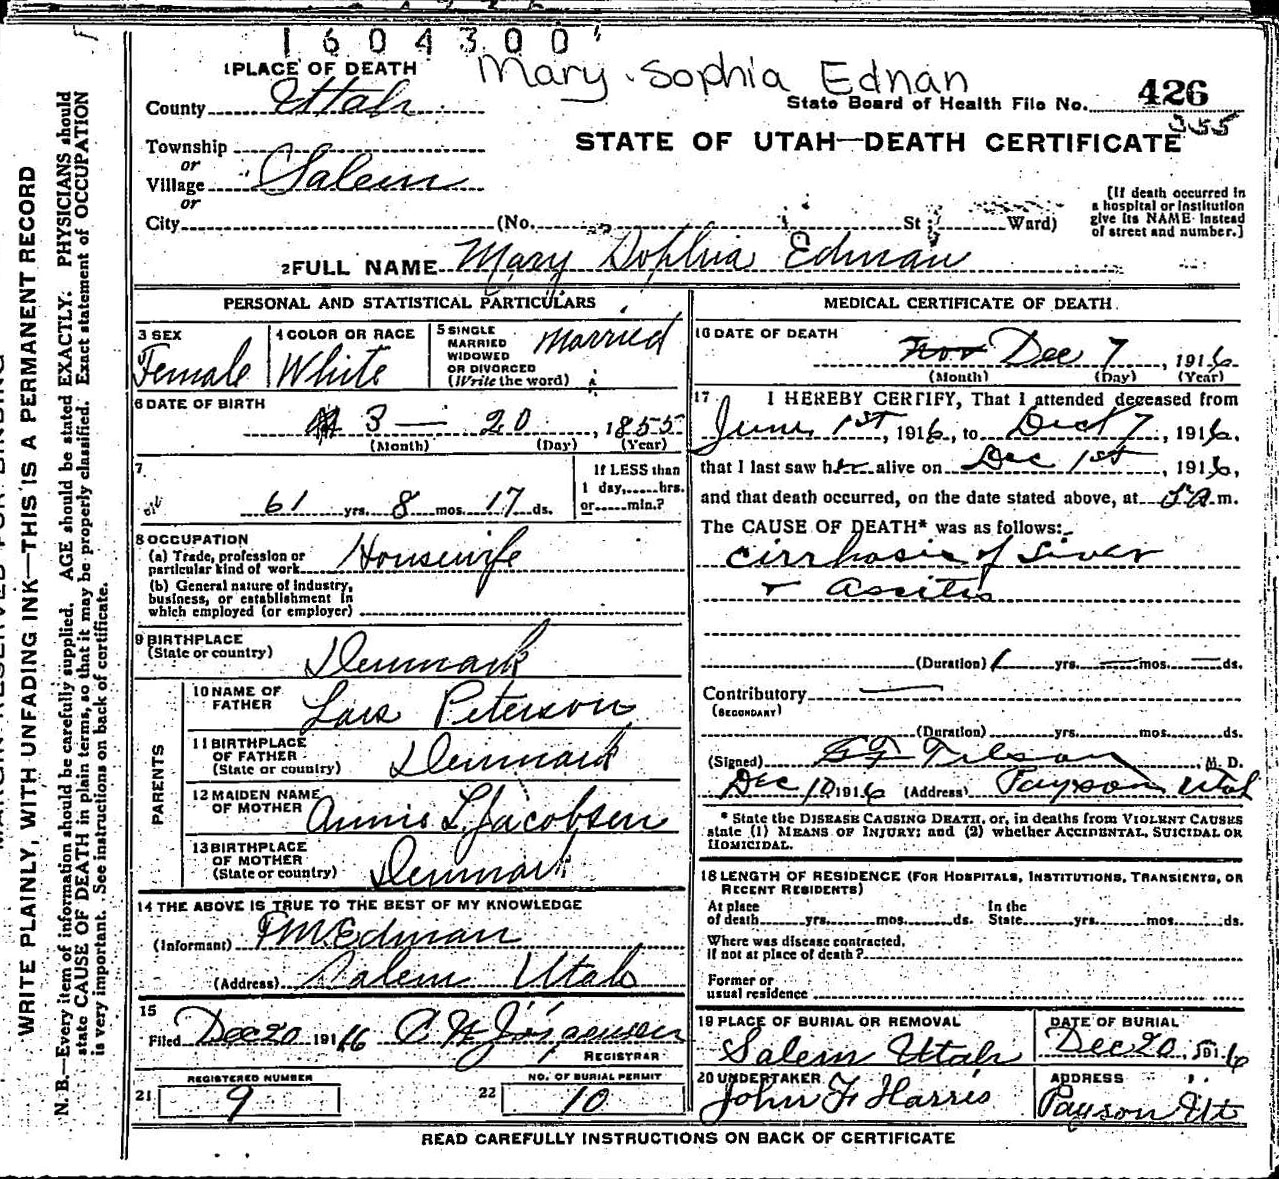 1604300
1 PLACE OF DEATH Mary Sophia Ednan
County Utah State Board of Health File No. 426
355
STATE OF UTAH—DEATH CERTIFICATE
Township
or
Village Salem
or
City (No. St Ward)
[If death occurred in
a hospital or institution
give its NAME instead
of street and number.]
2 FULL NAME Mary Sophia Edman
PERSONAL AND STATISTICAL PARTICULARS
3 SEX
Female
4 COLOR OR RACE
White
5 SINGLE
MARRIED
WIDOWED
OR DIVORCED
(Write the word)
Married
6 DATE OF BIRTH
3 — 20, 1855
(Month) (Day) (Year)
7
61 yrs. 8 mos. 17 ds.
If LESS than
1 day,......hrs.
or......min.?
8 OCCUPATION
(a) Trade, profession or
particular kind of work Housewife
(b) General nature of industry,
business, or establishment in
which employed (or employer)
9 BIRTHPLACE
(State or country) Denmark
PARENTS
10 NAME OF
FATHER Lars Peterson
11 BIRTHPLACE
OF FATHER
(State or country) Denmark
12 MAIDEN NAME
OF MOTHER Annie L. Jacobsen
13 BIRTHPLACE
OF MOTHER
(State or country) Denmark
14 THE ABOVE IS TRUE TO THE BEST OF MY KNOWLEDGE
(Informant) Edman
(Address) Salem Utah
15
Filed Dec 20 1916 C W Jorgensen
REGISTRAR
REGISTERED NUMBER
21 9
NO. OF BURIAL PERMIT
22 10
MEDICAL CERTIFICATE OF DEATH
16 DATE OF DEATH
Nov Dec 7, 1916
(Month) (Day) (Year)
17 I HEREBY CERTIFY, That I attended deceased from
June 1st, 1916, to Dec 7, 1916,
that I last saw her alive on Dec 1st, 1916,
and that death occurred, on the date stated above, at 5 A.m.
The CAUSE OF DEATH* was as follows:
Cirrhosis of Liver
+ Assitis
(Duration) 1 yrs. — mos. — ds.
Contributory —
(SECONDARY)
(Duration) yrs. mos. ds.
(Signed) Tilson, M. D.
Dec 10 1916 (Address) Payson Utah
* State the DISEASE CAUSING DEATH, or, in deaths from VIOLENT CAUSES
state (1) MEANS OF INJURY; and (2) whether ACCIDENTAL, SUICIDAL OR
HOMICIDAL.
18 LENGTH OF RESIDENCE (FOR HOSPITALS, INSTITUTIONS, TRANSIENTS, OR
RECENT RESIDENTS)
At place
of death yrs. mos. ds.
In the
State yrs. mos. ds.
Where was disease contracted,
if not at place of death?
Former or
usual residence
19 PLACE OF BURIAL OR REMOVAL
Salem Utah
DATE OF BURIAL
Dec 20, 1916
20 UNDERTAKER
John F Harris
ADDRESS
Payson Ut
READ CAREFULLY INSTRUCTIONS ON BACK OF CERTIFICATE
WRITE PLAINLY, WITH UNFADING INK—THIS IS A PERMANENT RECORD
N. B.—Every item of information should be carefully supplied. AGE should be stated EXACTLY. PHYSICIANS should
state CAUSE OF DEATH in plain terms, so that it may be properly classified. Exact statement of OCCUPATION
is very important. See instructions on back of certificate.